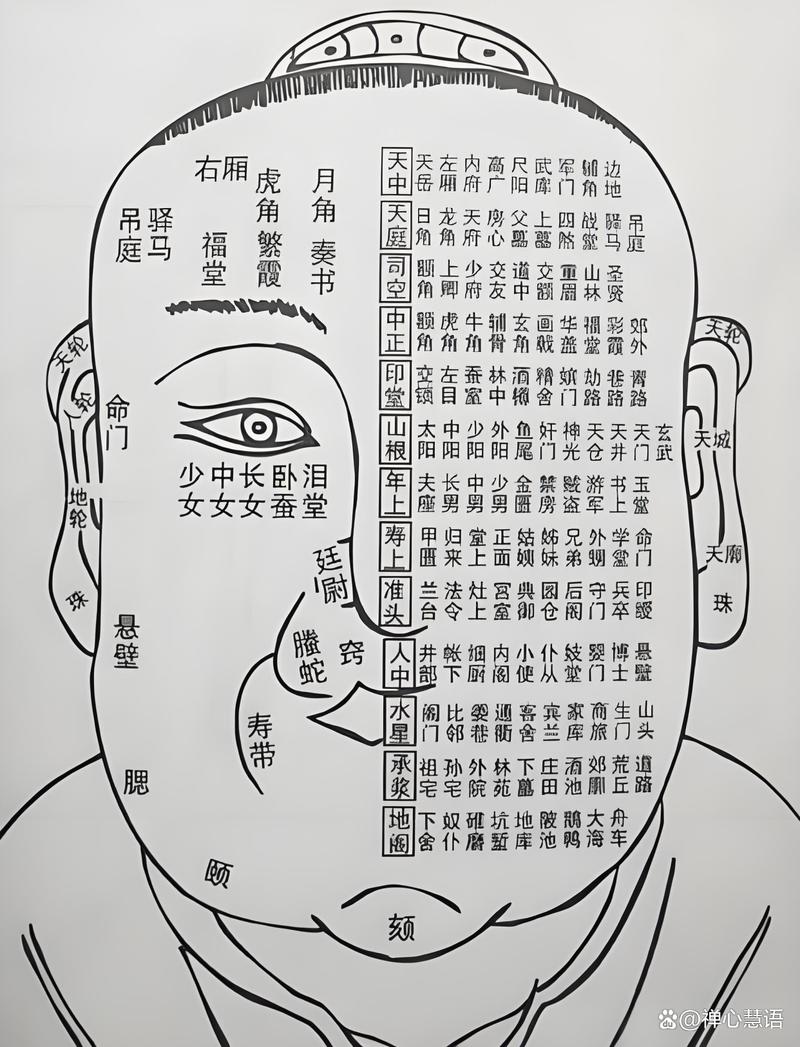 右厢
虎角
月角
吊庭
驿马
福堂
繁霞
奏书
天中 天岳 左厢 内府 高广 尺阳 武库 军门 辅角 边地
天庭 日角 龙角 天府 房心 父墓 上墓 四煞 战堂 驿马 吊庭
司空 额角 上卿 少府 交友 道中 交额 重眉 山林 圣贤
中正 额角 虎角 牛角 辅骨 玄角 画戟 华盖 福堂 彩霞 郊外
印堂 交锁 左目 蚕室 林中 酒樽 精舍 嫔门 劫路 巷路 青路
山根 太阳 中阳 少阳 外阳 鱼尾 奸门 神光 天仓 天井 天门 玄武
年上 夫座 长男 中男 少男 金匮 禁房 贼盗 游军 书上 玉堂
寿上 甲匮 归来 堂上 正面 姑姨 姊妹 兄弟 外甥 学堂 命门
准头 兰台 法令 灶上 宫室 典御 园仓 后阁 守门 兵卒 印绶
人中 井部 帐下 细厨 内阁 小使 仆从 妓堂 婴门 博士 悬壁
水星 阁门 比邻 委巷 通衢 客舍 宾兰 家库 商旅 生门 山头
承浆 祖宅 孙宅 外院 林苑 下墓 庄田 酒池 郊廓 荒丘 道路
地阁 下舍 奴仆 碓磨 坑堑 地库 陂池 鹅鸭 大海 舟车
天轮
人轮
地轮
珠
命门
少女 中女 长女 卧蚕 泪堂
廷尉
螣蛇
窍
寿带
悬壁
腮
颐
颏
天轮
天城
天廓
珠
@禅心慧语